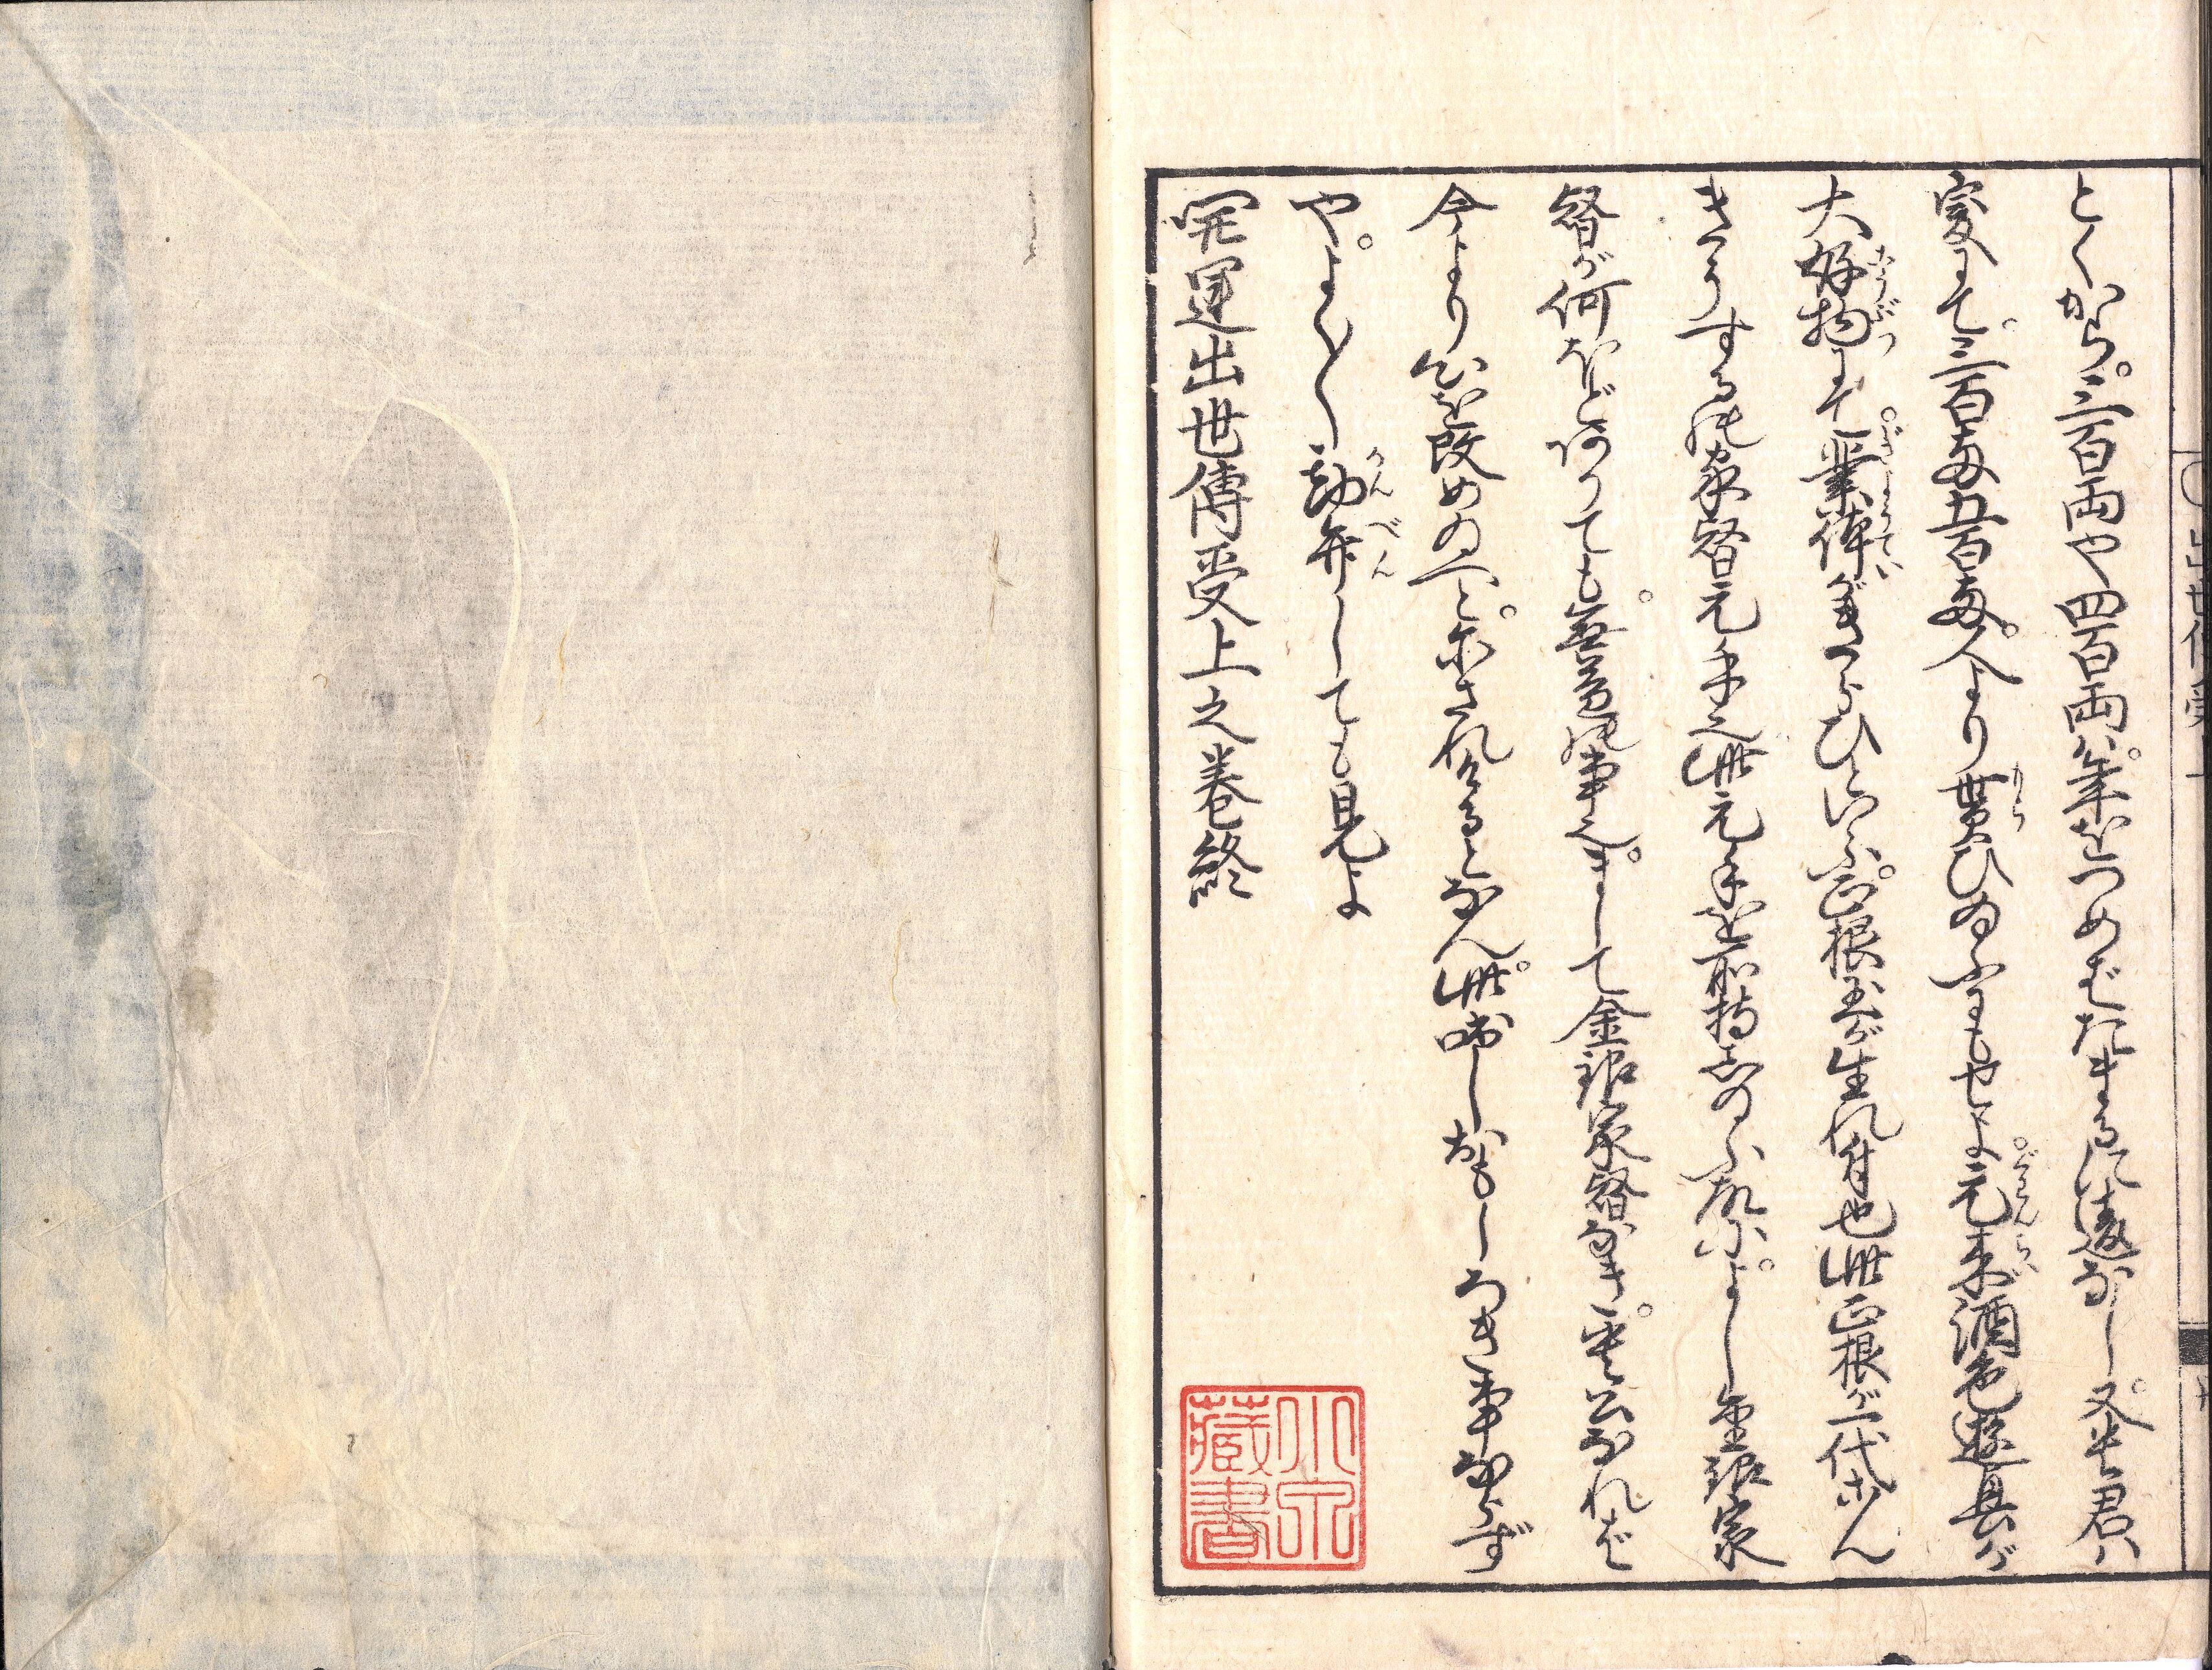 とくから。三百両や四百両は。年をつめばたまるに違なし。又其君は
家にて。三百両五百両。人より貰ひゐふにもせよ。元来酒色遊興が
大好物にて。業体がきらひといふ。正根玉が生れ付也此正根が一代ほん
きこうする家督元手也此元手を所持ゐふ故に。よし金銀家
督が何ほどありても。無益の事也。まして金銀家督なき。其公なれば
今より心を改めのへと。示されけるとなん。此咄しおもしろき事ならず
や。よく〳〵勘弁しても見よ
開運出世傳受上之巻終
小穴蔵書